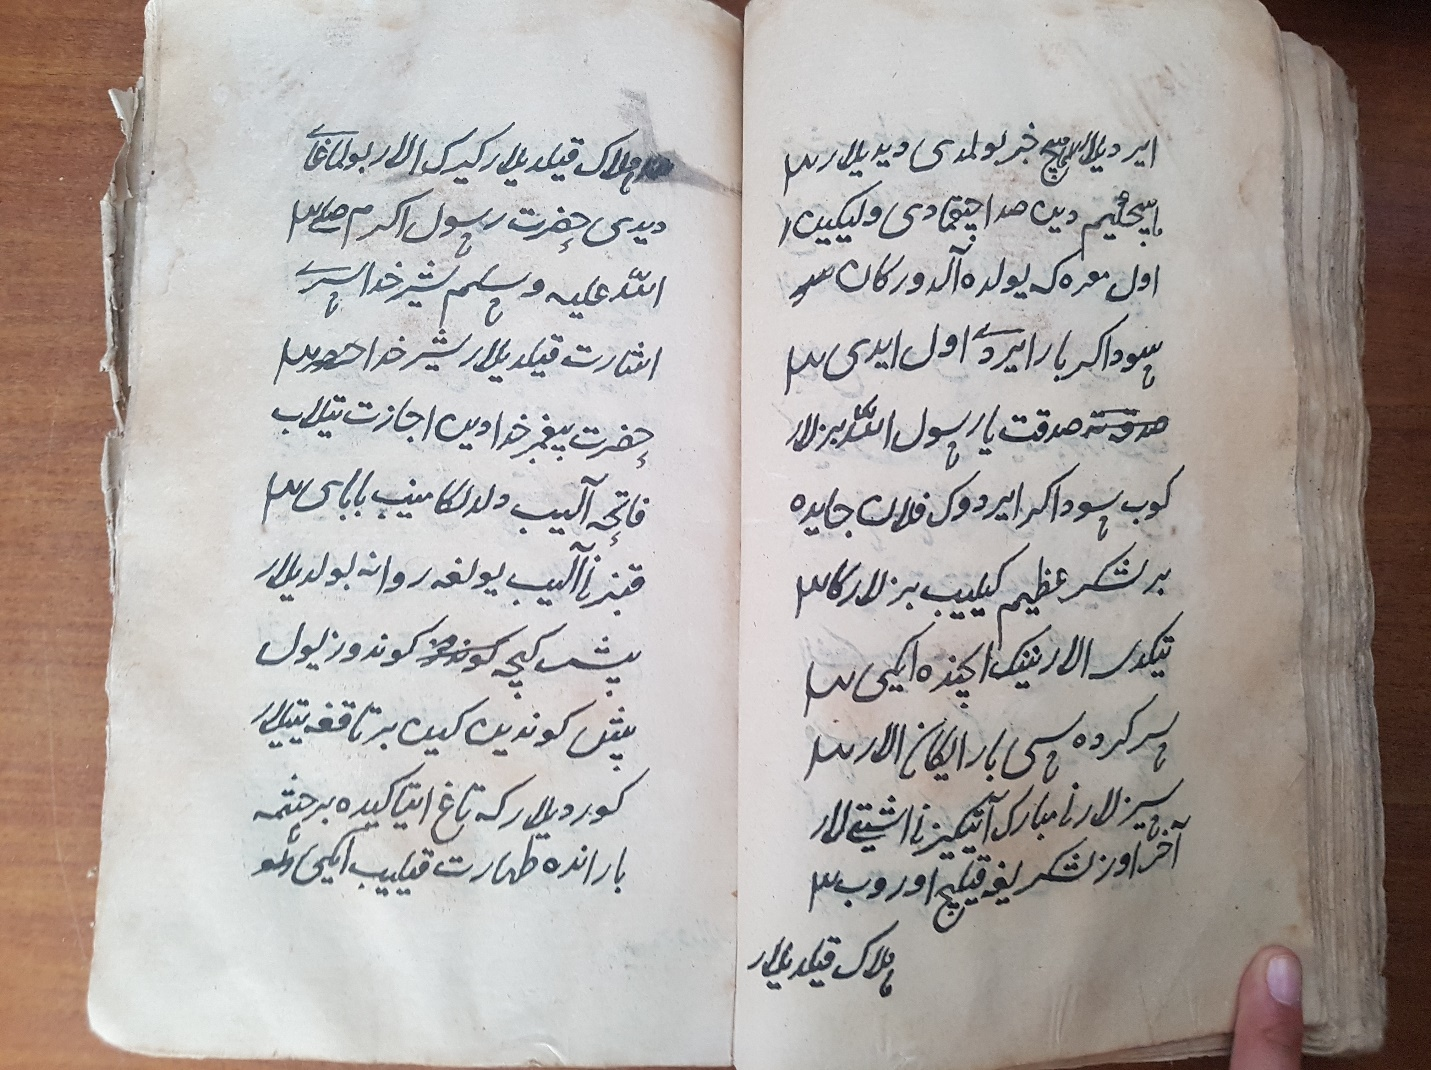 ایردیلار هیچ خبر بولمدی دیدیلار
هیچکیم دین صدا چیقمادی ولیکین
اول مره که یولده آلدورکان
سوداکر بار ایردی اول ایدی
صدقت یا رسول الله بزلار
کوب سوداکر ایردوک فلان جایده
بر لشکر عظیم کیلیب بزلارکا
تیکدی الارنینک ایچنده ایکی
سرکرده سی بار ایکان الار
سیزلارنا مبارک آتینکیزنا اشیتی لار
آخر اوز لشکریغه قیلیچ اوروب
هلاک قیلدیلار
هلاک قیلدیلار کیرک الار بولماغای
دیدی حضرت رسول اکرم صلی
الله علیه و سلم شیر خداسری
اشارت قیلدیلار شیر خدا
حضرت پیغمبر خدادین اجازت تیلاب
فاتحه آلیب دلدلکا مینیب بابای
قنبرنا آلیب یولغه روانه بولدیلار
بیش کیچه کوندوز یول
بیش کوندین کین بر تاقغه یتیلار
کوردیلار که تاغ ایتاکیده بر چشمه
بار انده طهارت قیلیب ایکی